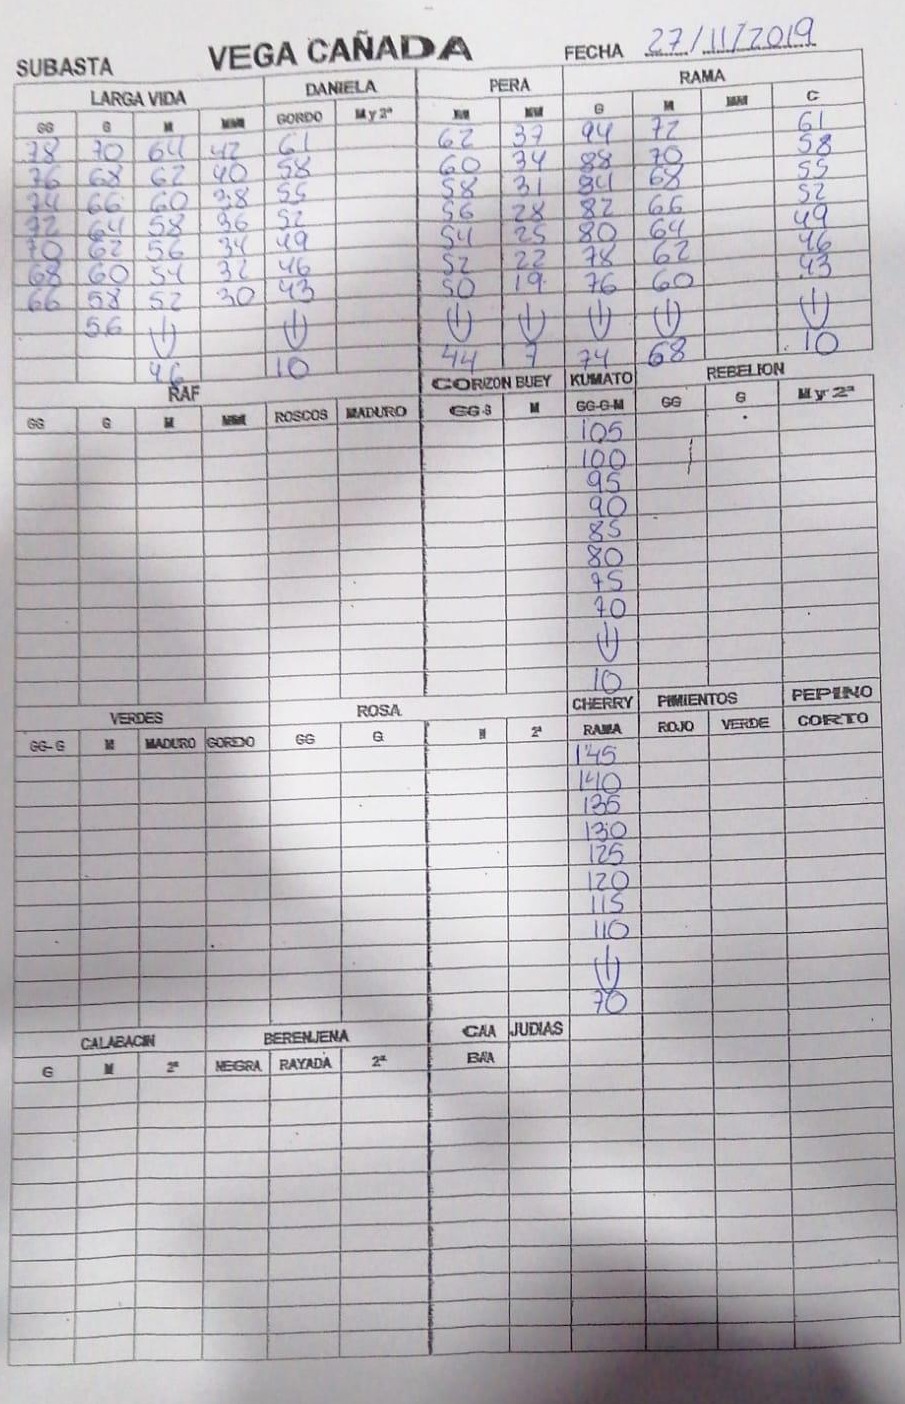 SUBASTA VEGA CAÑADA FECHA 27/11/2019
LARGA VIDA DANIELA PERA RAMA
GG G M MM GORDO M y 2ª M MM G M MM C
78 70 64 42 61 62 37 94 72 61
76 68 62 40 58 60 34 88 70 58
74 66 60 38 55 58 31 84 68 55
72 64 58 36 52 56 28 82 66 52
70 62 56 34 49 54 25 80 64 49
68 60 54 32 46 52 22 78 62 46
66 58 52 30 43 50 19 76 60 43
56
46 10 44 7 74 68 10
RAF CORIZON BUEY KUMATO REBELION
GG G M MM ROSCOS MADURO GG-G M GG-G-M GG G M y 2ª
105
100
95
90
85
80
75
70
10
VERDES ROSA CHERRY PIMIENTOS PEPINO
GG-G M MADURO GORDO GG G M 2ª RAMA ROJO VERDE CORTO
145
140
135
130
125
120
115
110
70
CALABACIN BERENJENA CAA JUDIAS
G M 2ª NEGRA RAYADA 2ª BAA